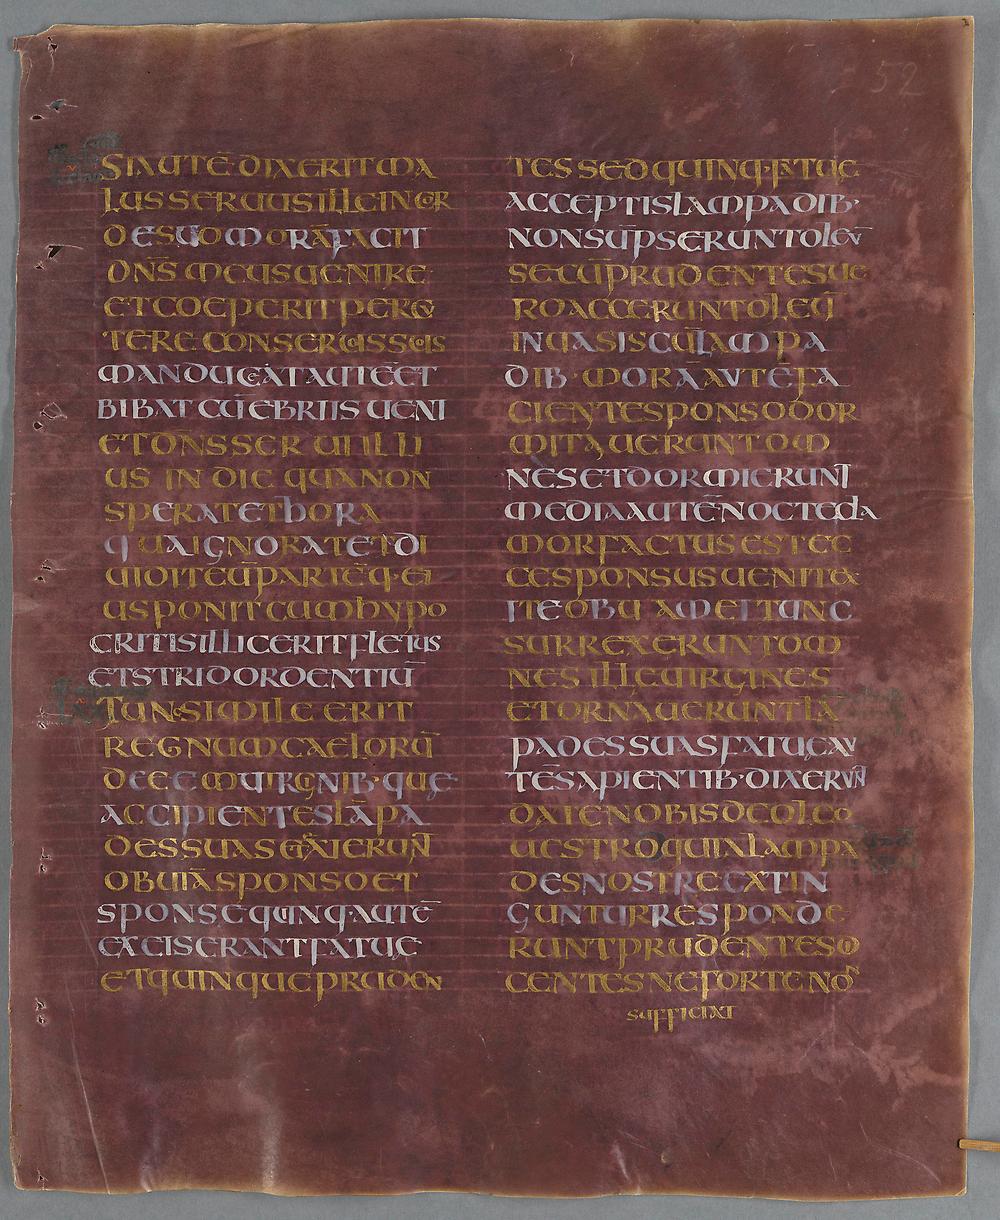 52
SIAUTĒDIXERITMA
LUSSERUUSILLEINCOR
DESUOMORĀFACIT
DN̄SMEUSUENIRE
ETCOEPERITPERCU
TERECONSERUOSSUOS
MANDUCATAUTĒET
BIBATCŪEBRIISUENI
ETDN̄SSERUIILLI
USINDIEQUANON
SPERATETHORA
QUAIGNORATETDI
UIDITEŪPARTĒQ·EI
USPONITCUMHYPO
CRITISILLICERITFLETUS
ETSTRIDORDENTIŪ
TUNSIMILEERIT
REGNUMCAELORŪ
DECEMUIRGNIB·QUE
ACCIPIENTESLĀPA
DESSUASEXIERUNT
OBUIĀSPONSOET
SPONSEQUINQ·AUTĒ
EXEISERANTFATUE
ETQUINQUEPRUDEN
TESSEDQUINQ·FATUE
ACCEPTISLAMPADIB·
NONSŪPSERUNTOLEŪ
SECŪPRUDENTESUE
ROACCERUNTOLEŪ
INUASISCŪLAMPA
DIB·MORĀAUTĒFA
CIENTESPONSODOR
MITAUERUNTOM
NESETDORMIERUNT
MEDIAAUTĒNOCTECLA
MORFACTUSESTEC
CESPONSUSUENITEX
ITEOBUIAMEITUNC
SURREXERUNTOM
NESILLEUIRGINES
ETORNAUERUNTLĀ
PADESSUASFATUEAU
TĒSAPIENTIB·DIXERUN
DATENOBISDEOLEO
UESTROQUIALAMPA
DESNOSTREEXTIN
GUNTURRESPONDE
RUNTPRUDENTESDI
CENTESNEFORTENON
SUFFICIAT